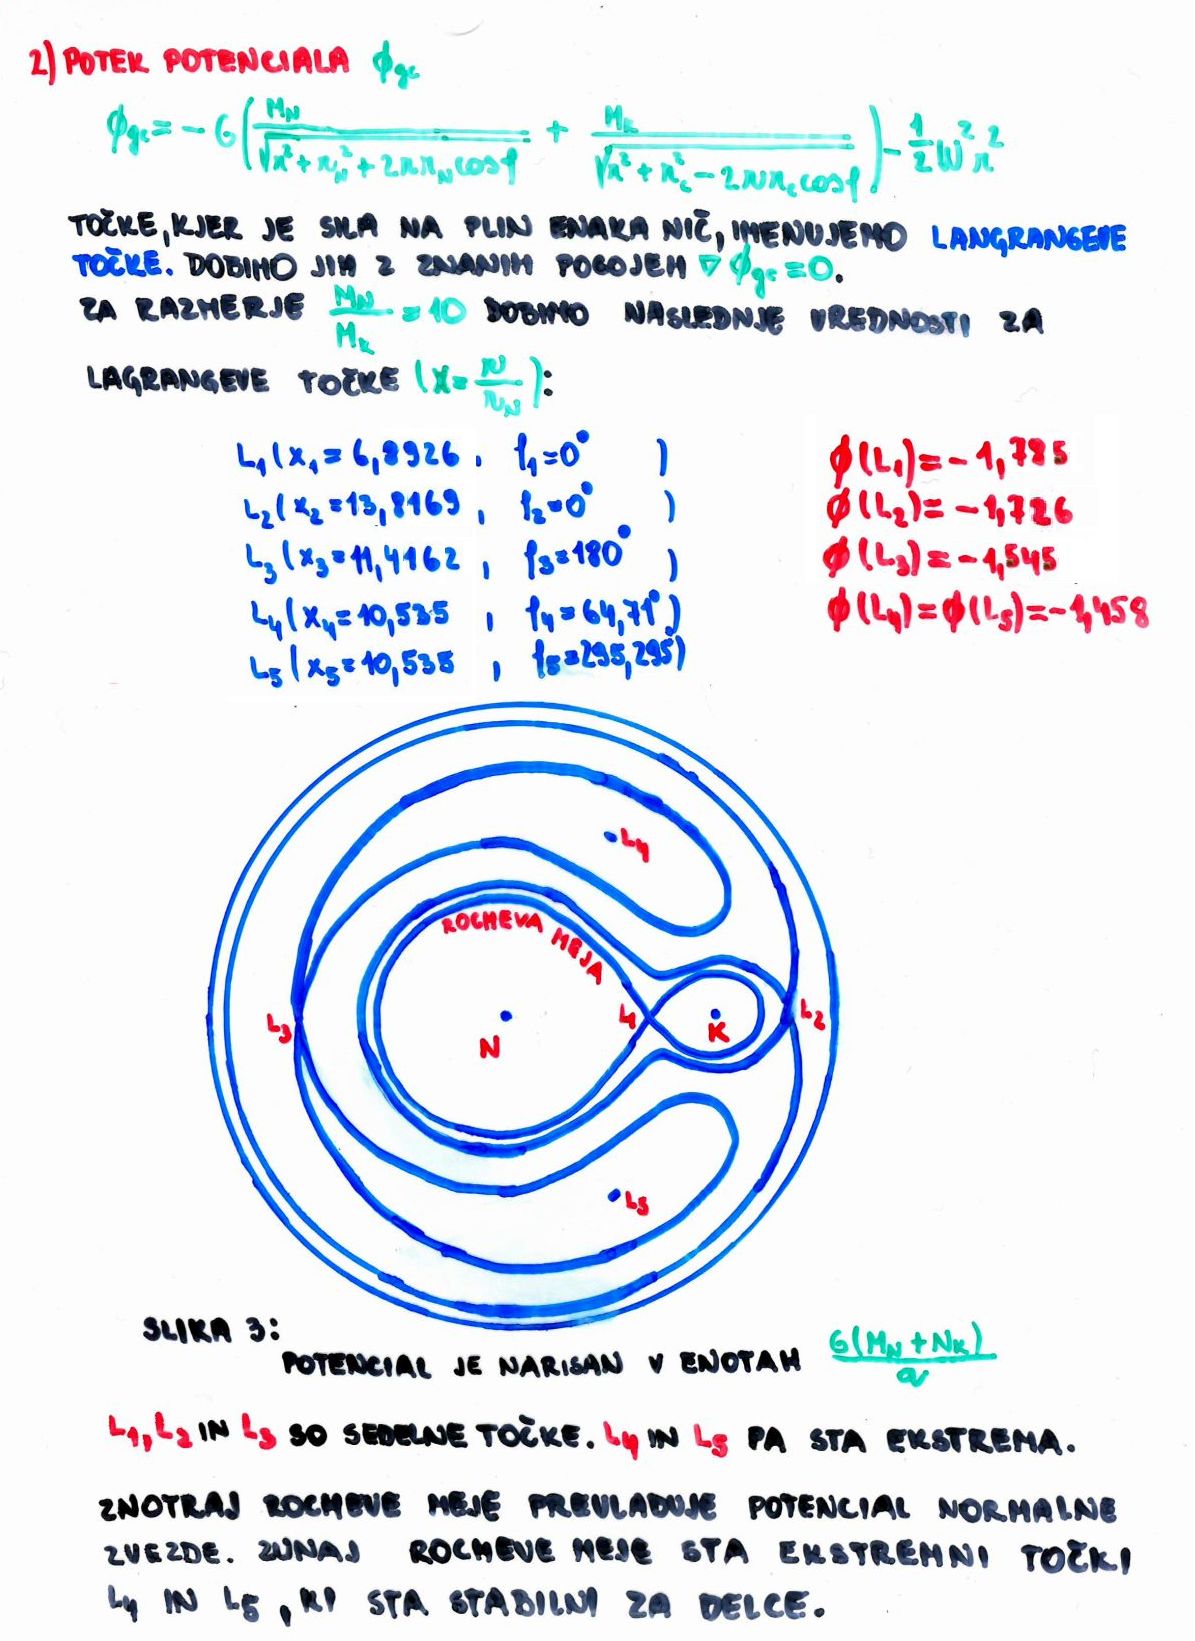 2) POTEK POTENCIALA ϕgc
ϕgc = - G ( MN / √(r² + rN² + 2rrN cosφ) + MK / √(r² + rc² - 2rrc cosφ) ) - 1/2 W² r²
TOČKE, KJER JE SILA NA PLIN ENAKA NIČ, IMENUJEMO LANGRANGEVE
TOČKE. DOBIMO JIH Z ZNANIM POGOJEM ∇ϕgc = 0.
ZA RAZMERJE MN / MK = 10 DOBIMO NASLEDNJE VREDNOSTI ZA
LAGRANGEVE TOČKE (X = r / rN):
L1 (X1 = 6,8926, φ1 = 0°) ϕ(L1) = -1,785
L2 (X2 = 13,8169, φ2 = 0°) ϕ(L2) = -1,726
L3 (X3 = 11,4162, φ3 = 180°) ϕ(L3) = -1,545
L4 (X4 = 10,535, φ4 = 64,71°) ϕ(L4) = ϕ(L5) = -1,458
L5 (X5 = 10,535, φ5 = 295,295)
L4
ROCHEVA MEJA
L3
N
L1
K
L2
L5
SLIKA 3:
POTENCIAL JE NARISAN V ENOTAH G(MN + NK) / a
L1, L2 IN L3 SO SEDELNE TOČKE. L4 IN L5 PA STA EKSTREMA.
ZNOTRAJ ROCHEVE MEJE PREVLADUJE POTENCIAL NORMALNE
ZVEZDE. ZUNAJ ROCHEVE MEJE STA EKSTREMNI TOČKI
L4 IN L5, KI STA STABILNI ZA DELCE.